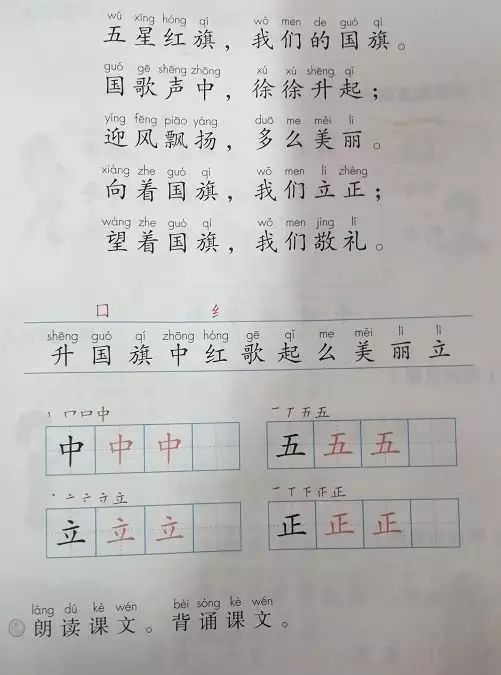 wǔ xīng hóng qí wǒ men de guó qí
五星红旗，我们的国旗。
guó gē shēng zhōng xú xú shēng qǐ
国歌声中，徐徐升起；
yíng fēng piāo yáng duō me měi lì
迎风飘扬，多么美丽。
xiàng zhe guó qí wǒ men lì zhèng
向着国旗，我们立正；
wàng zhe guó qí wǒ men jìng lǐ
望着国旗，我们敬礼。
囗 纟
shēng guó qí zhōng hóng gē qǐ me měi lì lì
升国旗中红歌起么美丽立
丨 冂 口 中 一 丅 五 五
中 中 中 五 五 五
丶 亠 立 一 丅 正 正
立 立 立 正 正 正
lǎng dú kè wén bèi sòng kè wén
朗读课文。背诵课文。